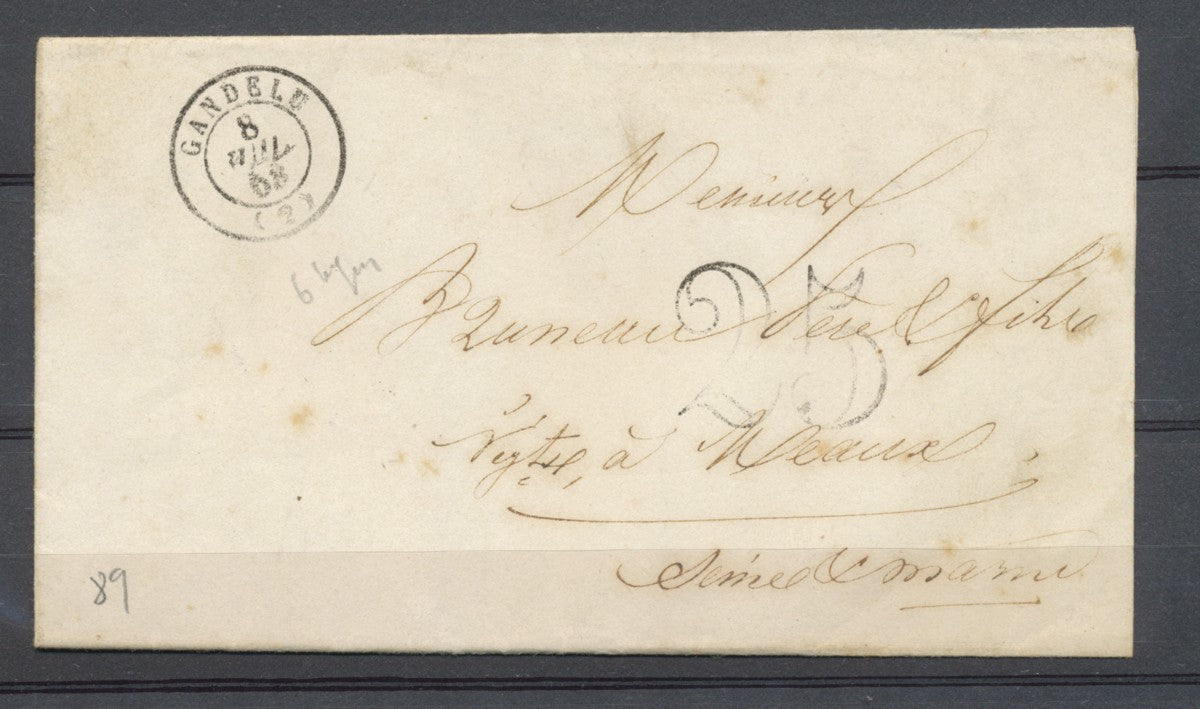 GANDELU
8
JUIL
68
(2)
Messieurs
25
Bruneau Père & fils
Négts, à Meaux
Seine & marne
89